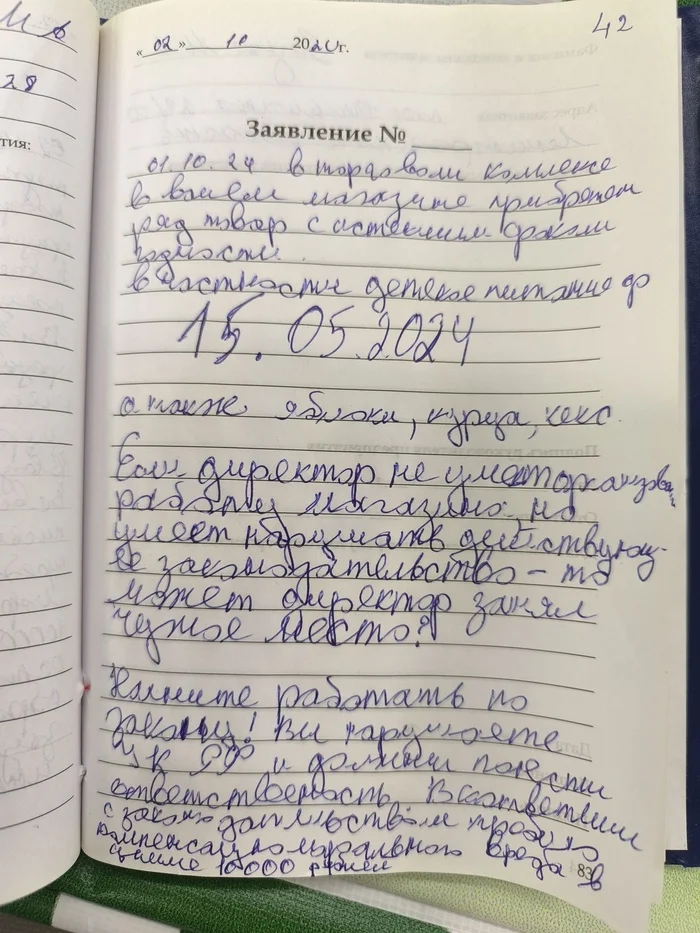 42
28
тия:
« 02 » 10 2024 г.
Заявление № ____
01.10.24 в торговом комплексе
в вашем магазине приобретен
ряд товар с истекшим сроком
годности.
в частности детское питание до
15.05.2024
а также яблоки, курица, кекс.
Если директор не умеет организова
работу магазина, но
умеет нарушать действующ-
ее законодательство – то
может директор занял
чужое место?
Начните работать по
закону! Вы нарушаете
УК РФ и должны понести
ответственность. В соответствии
с законодательством прошу
компенсацию морального вреда в
сумме 10000 рублей
83